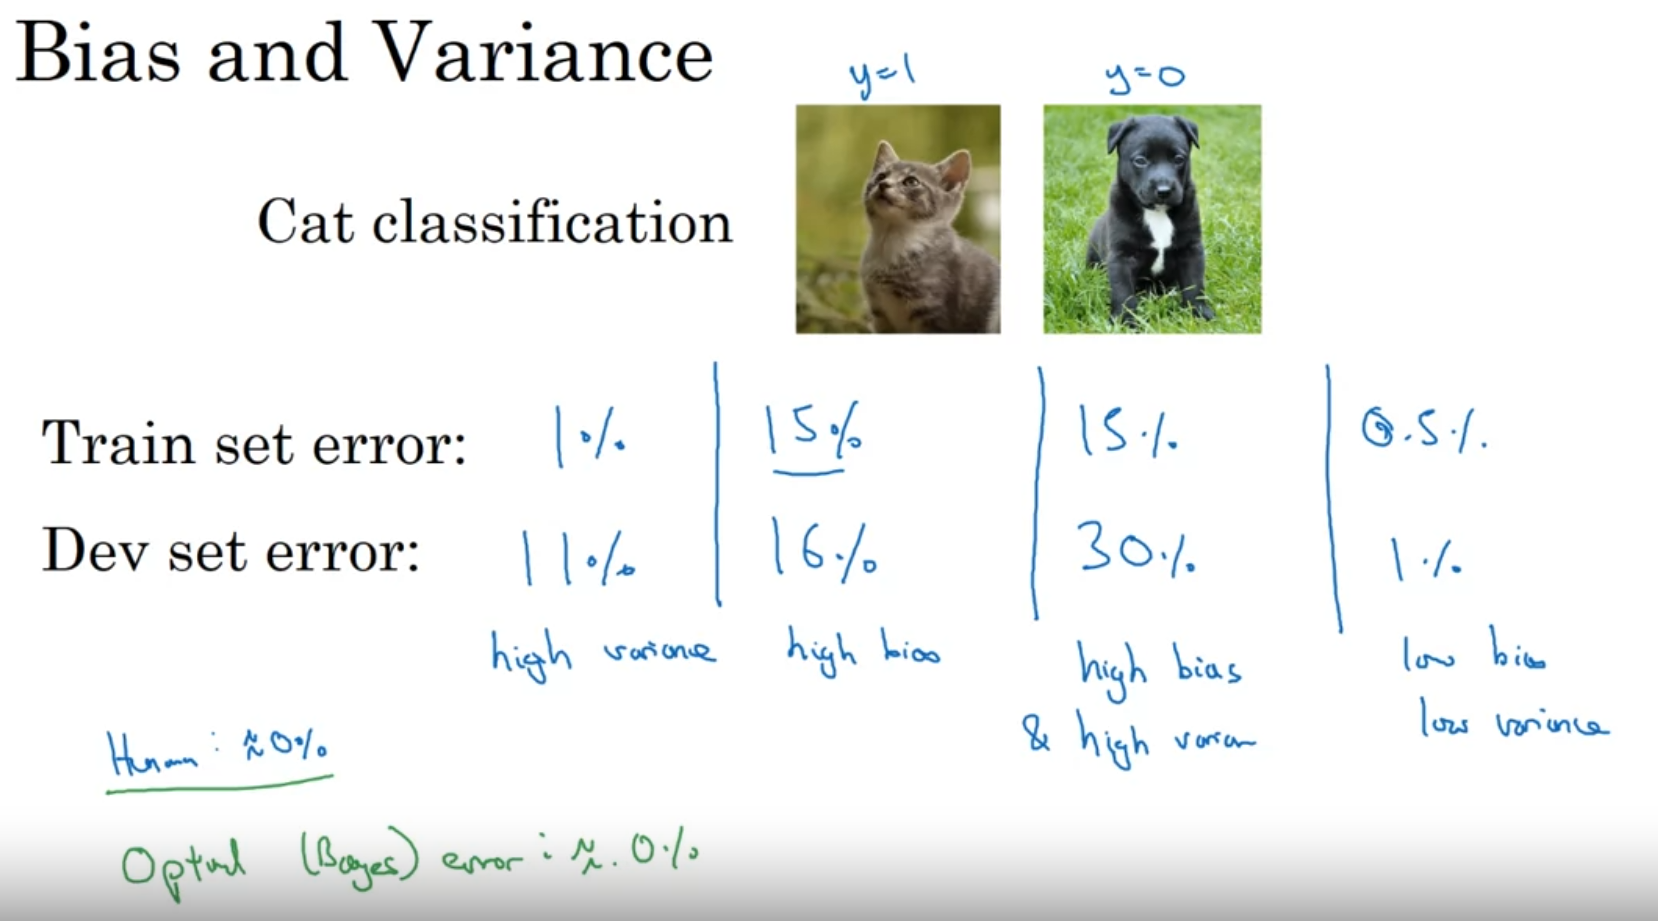 Bias and Variance
y=1 y=0
Cat classification
Train set error: 1% 15% 15% 0.5%
Dev set error: 11% 16% 30% 1%
high variance high bias high bias low bias
& high varian low variance
Human: ≈0%
Optimal (Bayes) error: ≈ 0%